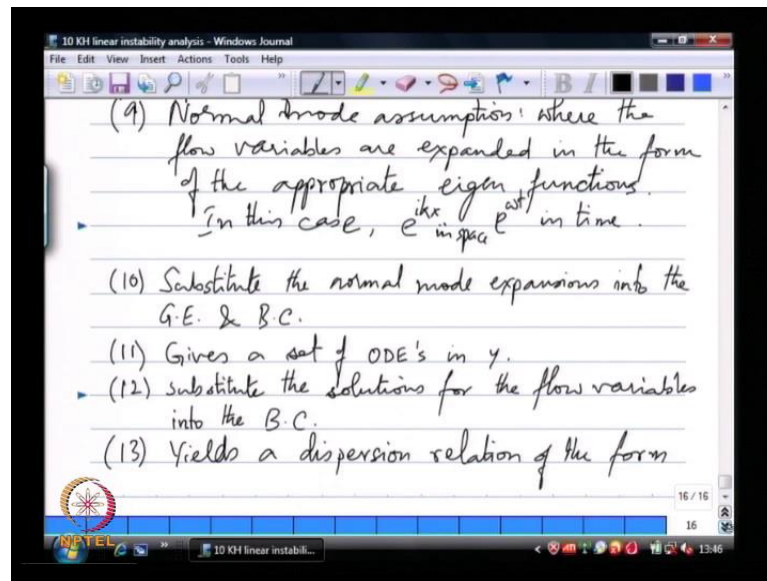 10 KH linear instability analysis - Windows Journal
File Edit View Insert Actions Tools Help
(9) Normal mode assumption: where the
flow variables are expanded in the form
of the appropriate eigen functions.
In this case, e^{ikx} in space e^{ωt} in time.
(10) Substitute the normal mode expansions into the
G.E. & B.C.
(11) Gives a set of ODE's in y.
(12) substitute the solutions for the flow variables
into the B.C.
(13) Yields a dispersion relation of the form
16 / 16
16
NPTEL
10 KH linear instabili...
13:46